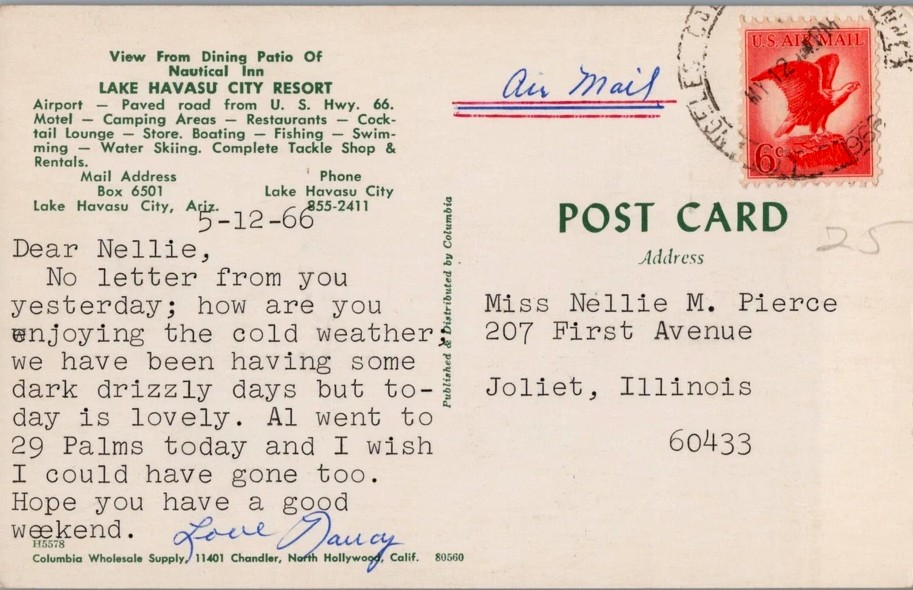 View From Dining Patio Of
Nautical Inn
LAKE HAVASU CITY RESORT
Airport — Paved road from U. S. Hwy. 66.
Motel — Camping Areas — Restaurants — Cock-
tail Lounge — Store. Boating — Fishing — Swim-
ming — Water Skiing. Complete Tackle Shop &
Rentals.
Mail Address
Box 6501
Lake Havasu City, Ariz.
Phone
Lake Havasu City
855-2411
5-12-66
Dear Nellie,
No letter from you
yesterday; how are you
enjoying the cold weather;
we have been having some
dark drizzly days but to-
day is lovely. Al went to
29 Palms today and I wish
I could have gone too.
Hope you have a good
weekend.
Love Nancy
H5578
Columbia Wholesale Supply, 11401 Chandler, North Hollywood, Calif. 80560
Published & Distributed by Columbia
Air Mail
U.S. AIR MAIL
6c
MY 12
PM
1966
POST CARD
Address
25
Miss Nellie M. Pierce
207 First Avenue
Joliet, Illinois
60433